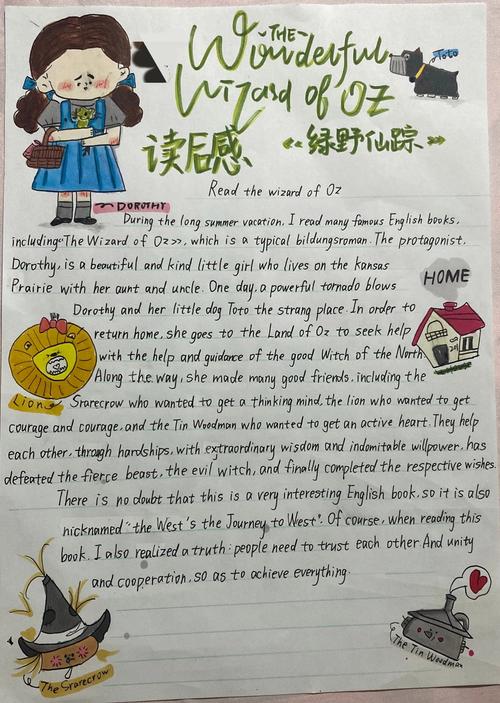 THE
Wonderful
Wizasd of OZ
Toto
读后感 《绿野仙踪》
Read the wizard of Oz
DOROTHY
During the long summer vacation, I read many famous English books,
including "The Wizard of Oz>>, which is a typical bildungsroman. The protagonist,
Dorothy, is a beautiful and kind little girl who lives on the kansas
Prairie with her aunt and uncle. One day, a powerful tornado blows
HOME
Dorothy and her little dog Toto the strang place. In order to
return home, she goes to the Land of Oz to seek help
with the help and guidance of the good Witch of the North
Along the way, she made many good friends, including the
Lion
Srarecrow who wanted to get a thinking mind, the lion who wanted to get
courage and courage, and the Tin Woodman who wanted to get an active heart. They help
each other, through hardships, with extraordinary wisdom and indomitable willpower, has
defeated the fierce beast, the evil witch, and finally completed the respective wishes.
There is no doubt that this is a very interesting English book, so it is also
nicknamed "the West's the Journey to West". Of course, when reading this
book. I also realized a truth: people need to trust each other And unity
and cooperation, so as to achieve everything.
The Srarecrow
The Tin Woodman